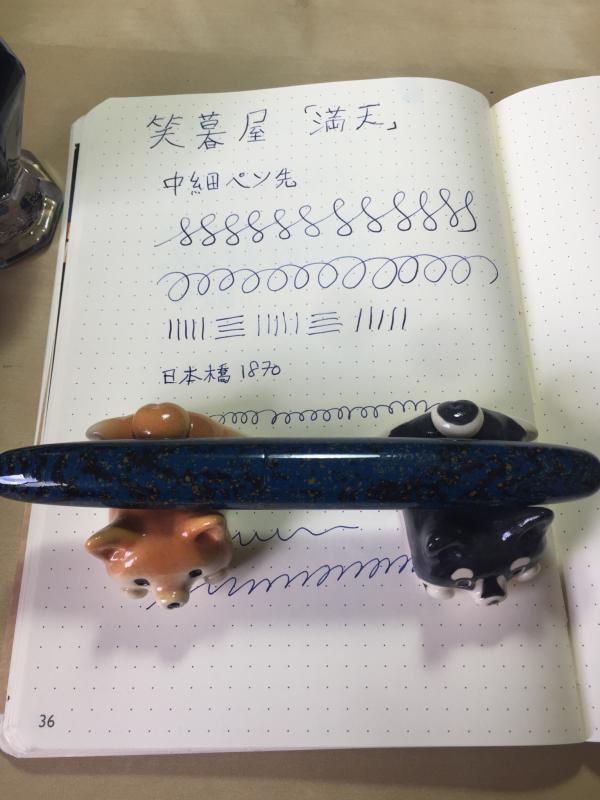 笑暮屋「満天」
中細ペン先
日本橋 1870
36